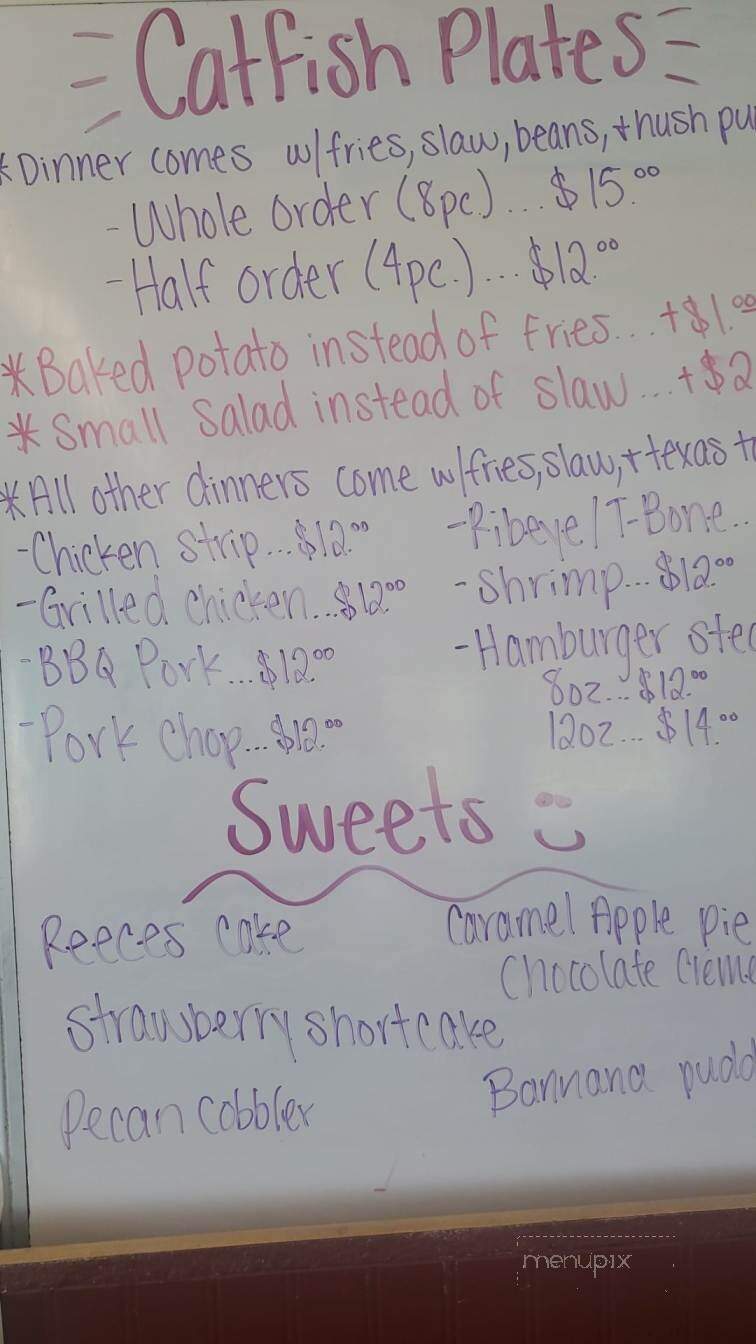 Catfish Plates
*Dinner comes w/fries, slaw, beans, + hush pu
- Whole order (8pc.)... $15.00
- Half order (4pc.)... $12.00
*Baked potato instead of fries... +$1.00
*Small Salad instead of slaw... +$2
*All other dinners come w/fries, slaw, + texas t
- Chicken Strip... $12.00
- Ribeye/T-Bone...
- Grilled chicken... $12.00
- Shrimp... $12.00
- BBQ Pork... $12.00
- Hamburger stea
8oz... $12.00
- Pork Chop... $12.00
12oz... $14.00
Sweets
Reeces Cake
Caramel Apple pie
Chocolate Creme
Strawberry shortcake
Bannana pudd
Pecan cobbler
menupix